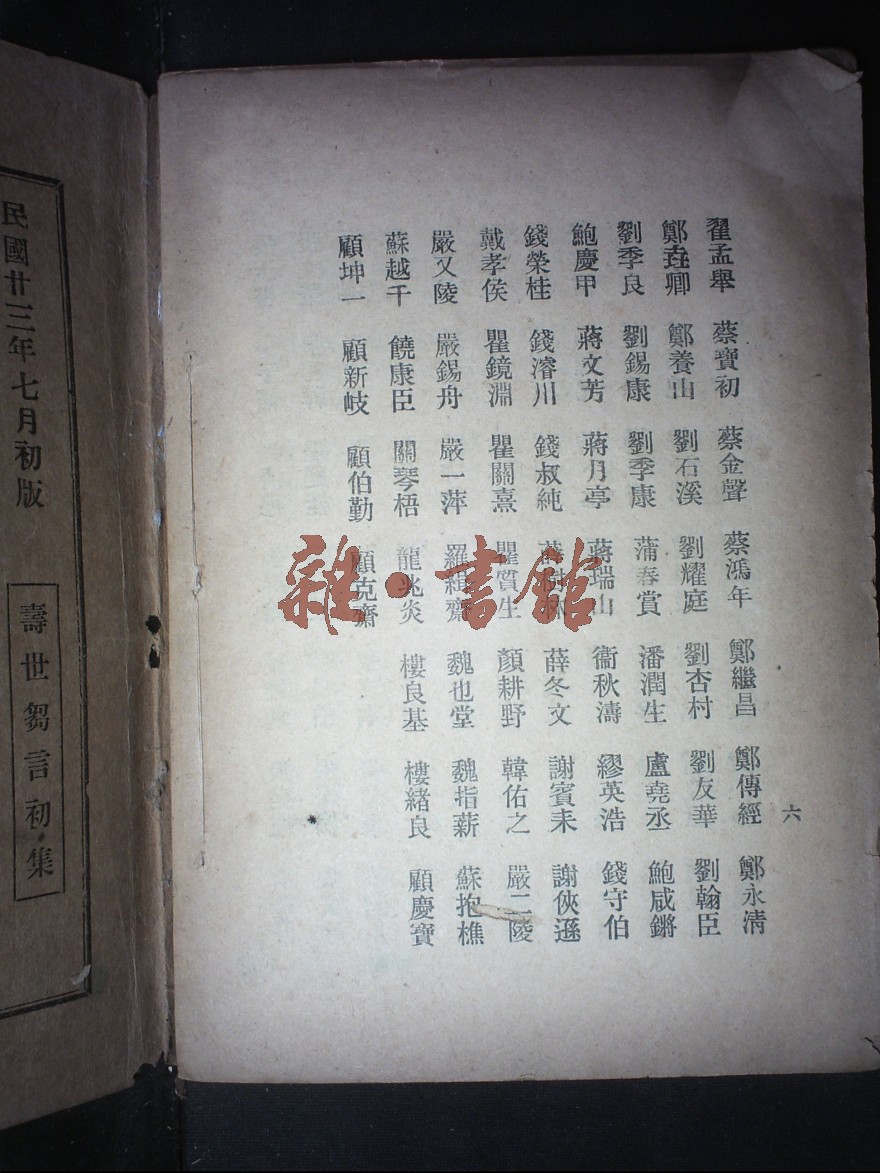 翟孟舉 蔡寶初 蔡金聲 蔡鴻年 鄭繼昌 鄭傳經 鄭永清
鄭垚卿 鄭養山 劉石溪 劉耀庭 劉杏村 劉友華 劉翰臣
劉季良 劉錫康 劉季康 蒲春賞 潘潤生 盧堯丞 鮑咸鏘
鮑慶甲 蔣文芳 蔣月亭 蔣瑞山 衞秋濤 繆英浩 錢守伯
錢榮桂 錢濬川 錢叔純 薛冬文 謝賓耒 謝俠遜
戴孝侯 瞿鏡淵 瞿關熹 瞿質生 顏耕野 韓佑之 嚴二陵
嚴又陵 嚴錫舟 嚴一萍 羅緝齋 魏也堂 魏指薪 蘇抱樵
蘇越千 饒康臣 關琴梧 龍兆炎 樓良基 樓緒良 顧慶寶
顧坤一 顧新岐 顧伯勤 顧克齋
六
民國廿三年七月初版
壽世芻言初集
雜·書館